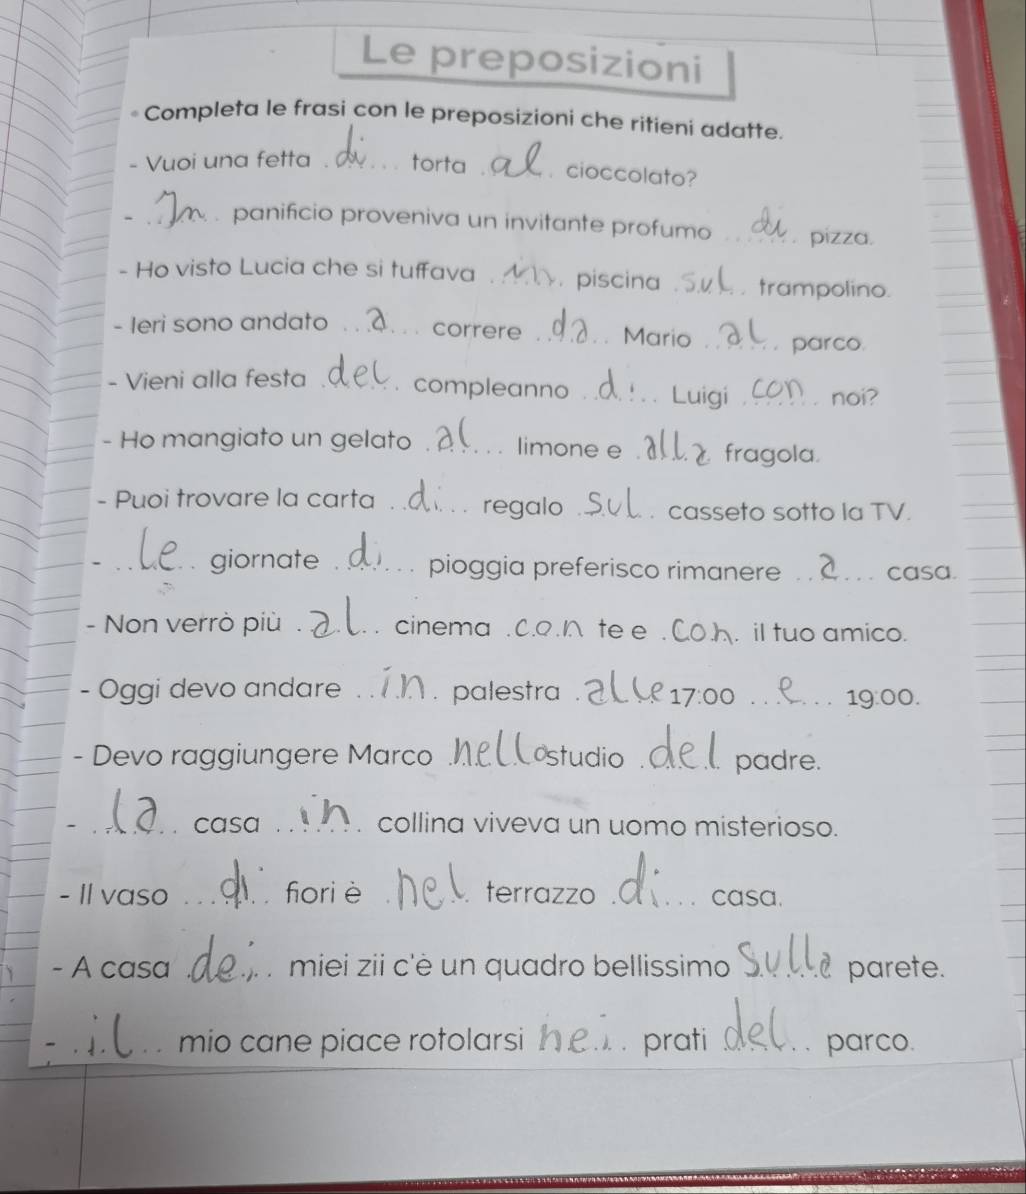 Le preposizioni
Completa le frasi con le preposizioni che ritieni adatte.
- Vuoi una fetta di torta al cioccolato?
- In panificio proveniva un invitante profumo di pizza.
- Ho visto Lucia che si tuffava in piscina sul trampolino.
- Ieri sono andato a correre da Mario al parco.
- Vieni alla festa del compleanno di Luigi con noi?
- Ho mangiato un gelato al limone e alla fragola.
- Puoi trovare la carta di regalo sul casseto sotto la TV.
- Le giornate di pioggia preferisco rimanere a casa.
- Non verrò più al cinema con te e con il tuo amico.
- Oggi devo andare in palestra alle 17:00 e 19:00.
- Devo raggiungere Marco nello studio del padre.
- la casa in collina viveva un uomo misterioso.
- Il vaso di fiori è nel terrazzo di casa.
- A casa dei miei zii c'è un quadro bellissimo sulla parete.
- il mio cane piace rotolarsi nei prati del parco.